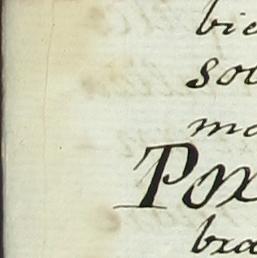 bie
sol
ma
Pox
bra